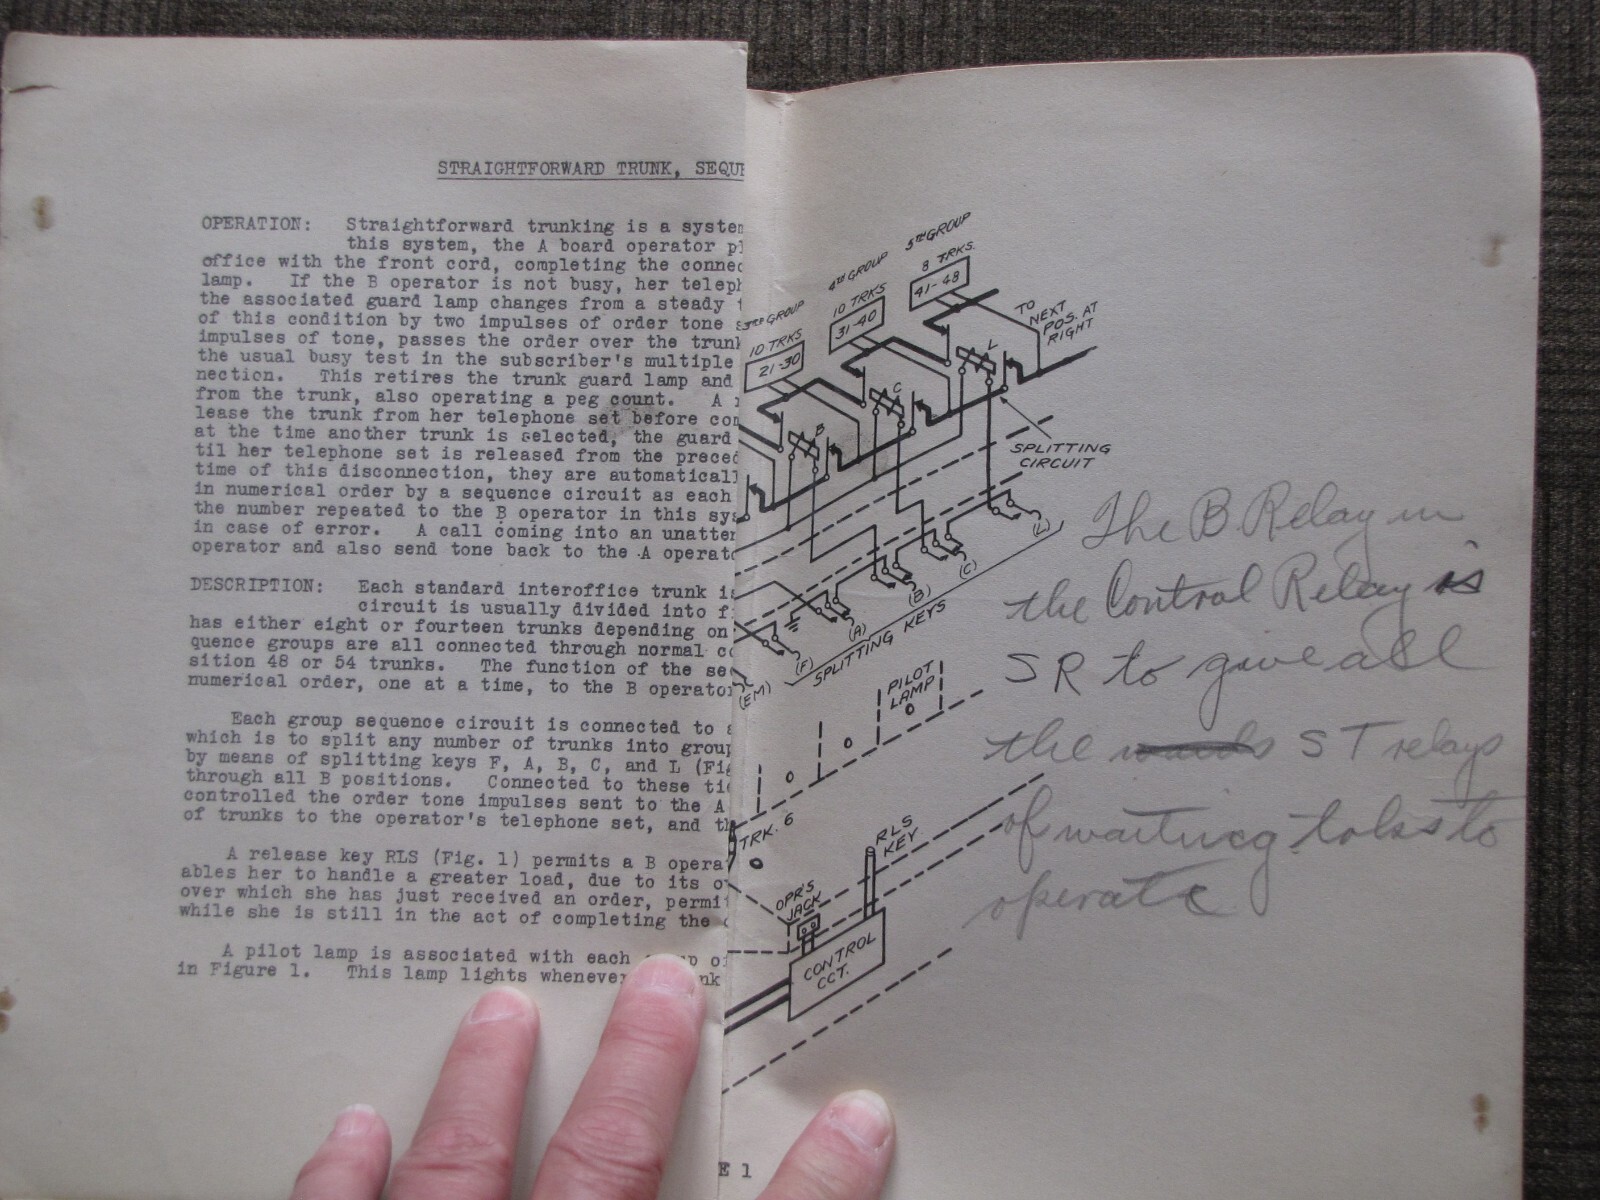 STRAIGHTFORWARD TRUNK, SEQUE
OPERATION: Straightforward trunking is a system
this system, the A board operator pl
office with the front cord, completing the connec
lamp. If the B operator is not busy, her teleph
the associated guard lamp changes from a steady
of this condition by two impulses of order tone s
impulses of tone, passes the order over the trunk
the usual busy test in the subscriber's multiple
nection. This retires the trunk guard lamp and
from the trunk, also operating a peg count. A
lease the trunk from her telephone set before com
at the time another trunk is selected, the guard
til her telephone set is released from the preced
time of this disconnection, they are automaticall
in numerical order by a sequence circuit as each
the number repeated to the B operator in this sys
in case of error. A call coming into an unatten
operator and also send tone back to the A operato
DESCRIPTION: Each standard interoffice trunk is
circuit is usually divided into f
has either eight or fourteen trunks depending on
quence groups are all connected through normal co
sition 48 or 54 trunks. The function of the se
numerical order, one at a time, to the B operator
Each group sequence circuit is connected to a
which is to split any number of trunks into group
by means of splitting keys F, A, B, C, and L (Fig
through all B positions. Connected to these tie
controlled the order tone impulses sent to the A
of trunks to the operator's telephone set, and th
A release key RLS (Fig. 1) permits a B opera
ables her to handle a greater load, due to its o
over which she has just received an order, permit
while she is still in the act of completing the c
A pilot lamp is associated with each
in Figure 1. This lamp lights whenever
3RD GROUP
10 TRKS
21-30
4TH GROUP
10 TRKS
31-40
5TH GROUP
8 TRKS.
41-48
TO
NEXT
POS. AT
RIGHT
B
C
L
SPLITTING
CIRCUIT
(EM)
(F)
(A)
(B)
(C)
(L)
SPLITTING KEYS
PILOT
LAMP
TRK. 6
OPR'S
JACK
RLS
KEY
CONTROL
CCT.
E 1
The B Relay in
the Control Relay is
SR to give all
the ST relays
of waiting to
operate